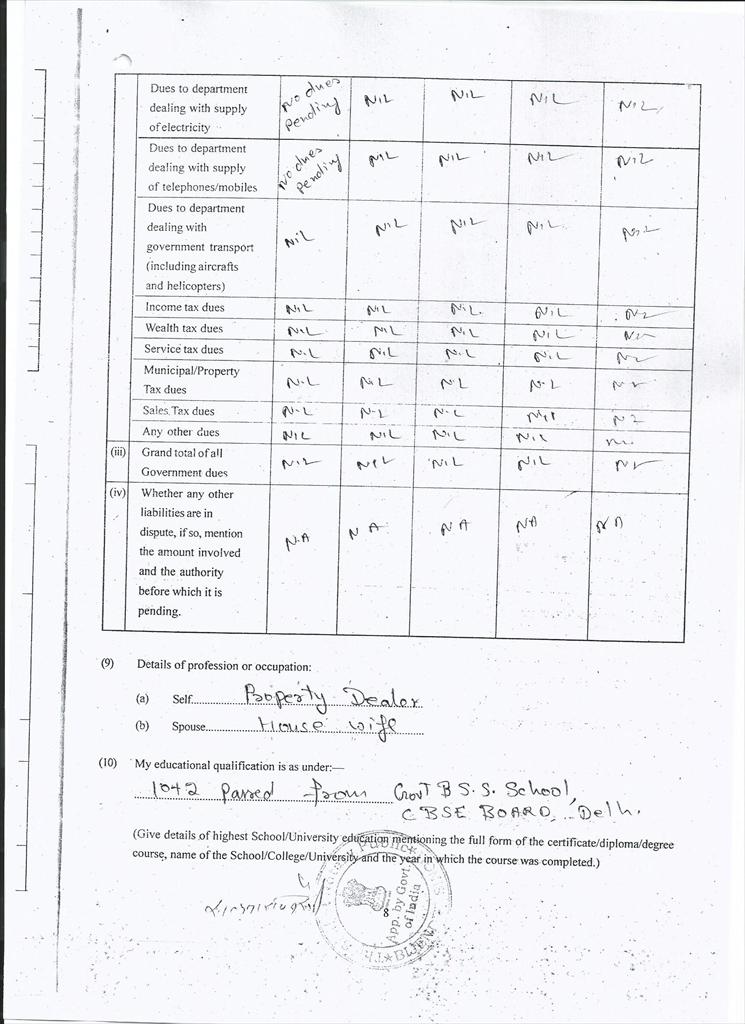 Dues to department dealing with supply of electricity | No dues Pending | NIL | NIL | NIL | NIL
Dues to department dealing with supply of telephones/mobiles | No dues Pending | NIL | NIL | NIL | NIL
Dues to department dealing with government transport (including aircrafts and helicopters) | NIL | NIL | NIL | NIL | NIL
Income tax dues | NIL | NIL | NIL | NIL | NIL
Wealth tax dues | NIL | NIL | NIL | NIL | NIL
Service tax dues | NIL | NIL | NIL | NIL | NIL
Municipal/Property Tax dues | NIL | NIL | NIL | NIL | NIL
Sales Tax dues | NIL | NIL | NIL | NIL | NIL
Any other dues | NIL | NIL | NIL | NIL | NIL
(iii) Grand total of all Government dues | NIL | NIL | NIL | NIL | NIL
(iv) Whether any other liabilities are in dispute, if so, mention the amount involved and the authority before which it is pending. | N.A | N A | N A | NA | N A
(9) Details of profession or occupation:
(a) Self Property Dealer
(b) Spouse House wife
(10) My educational qualification is as under:—
10+2 Passed from Govt B S. S. School,
CBSE BOARD, Delhi.
(Give details of highest School/University education mentioning the full form of the certificate/diploma/degree
course, name of the School/College/University and the year in which the course was completed.)
App. by Govt.
of India
8